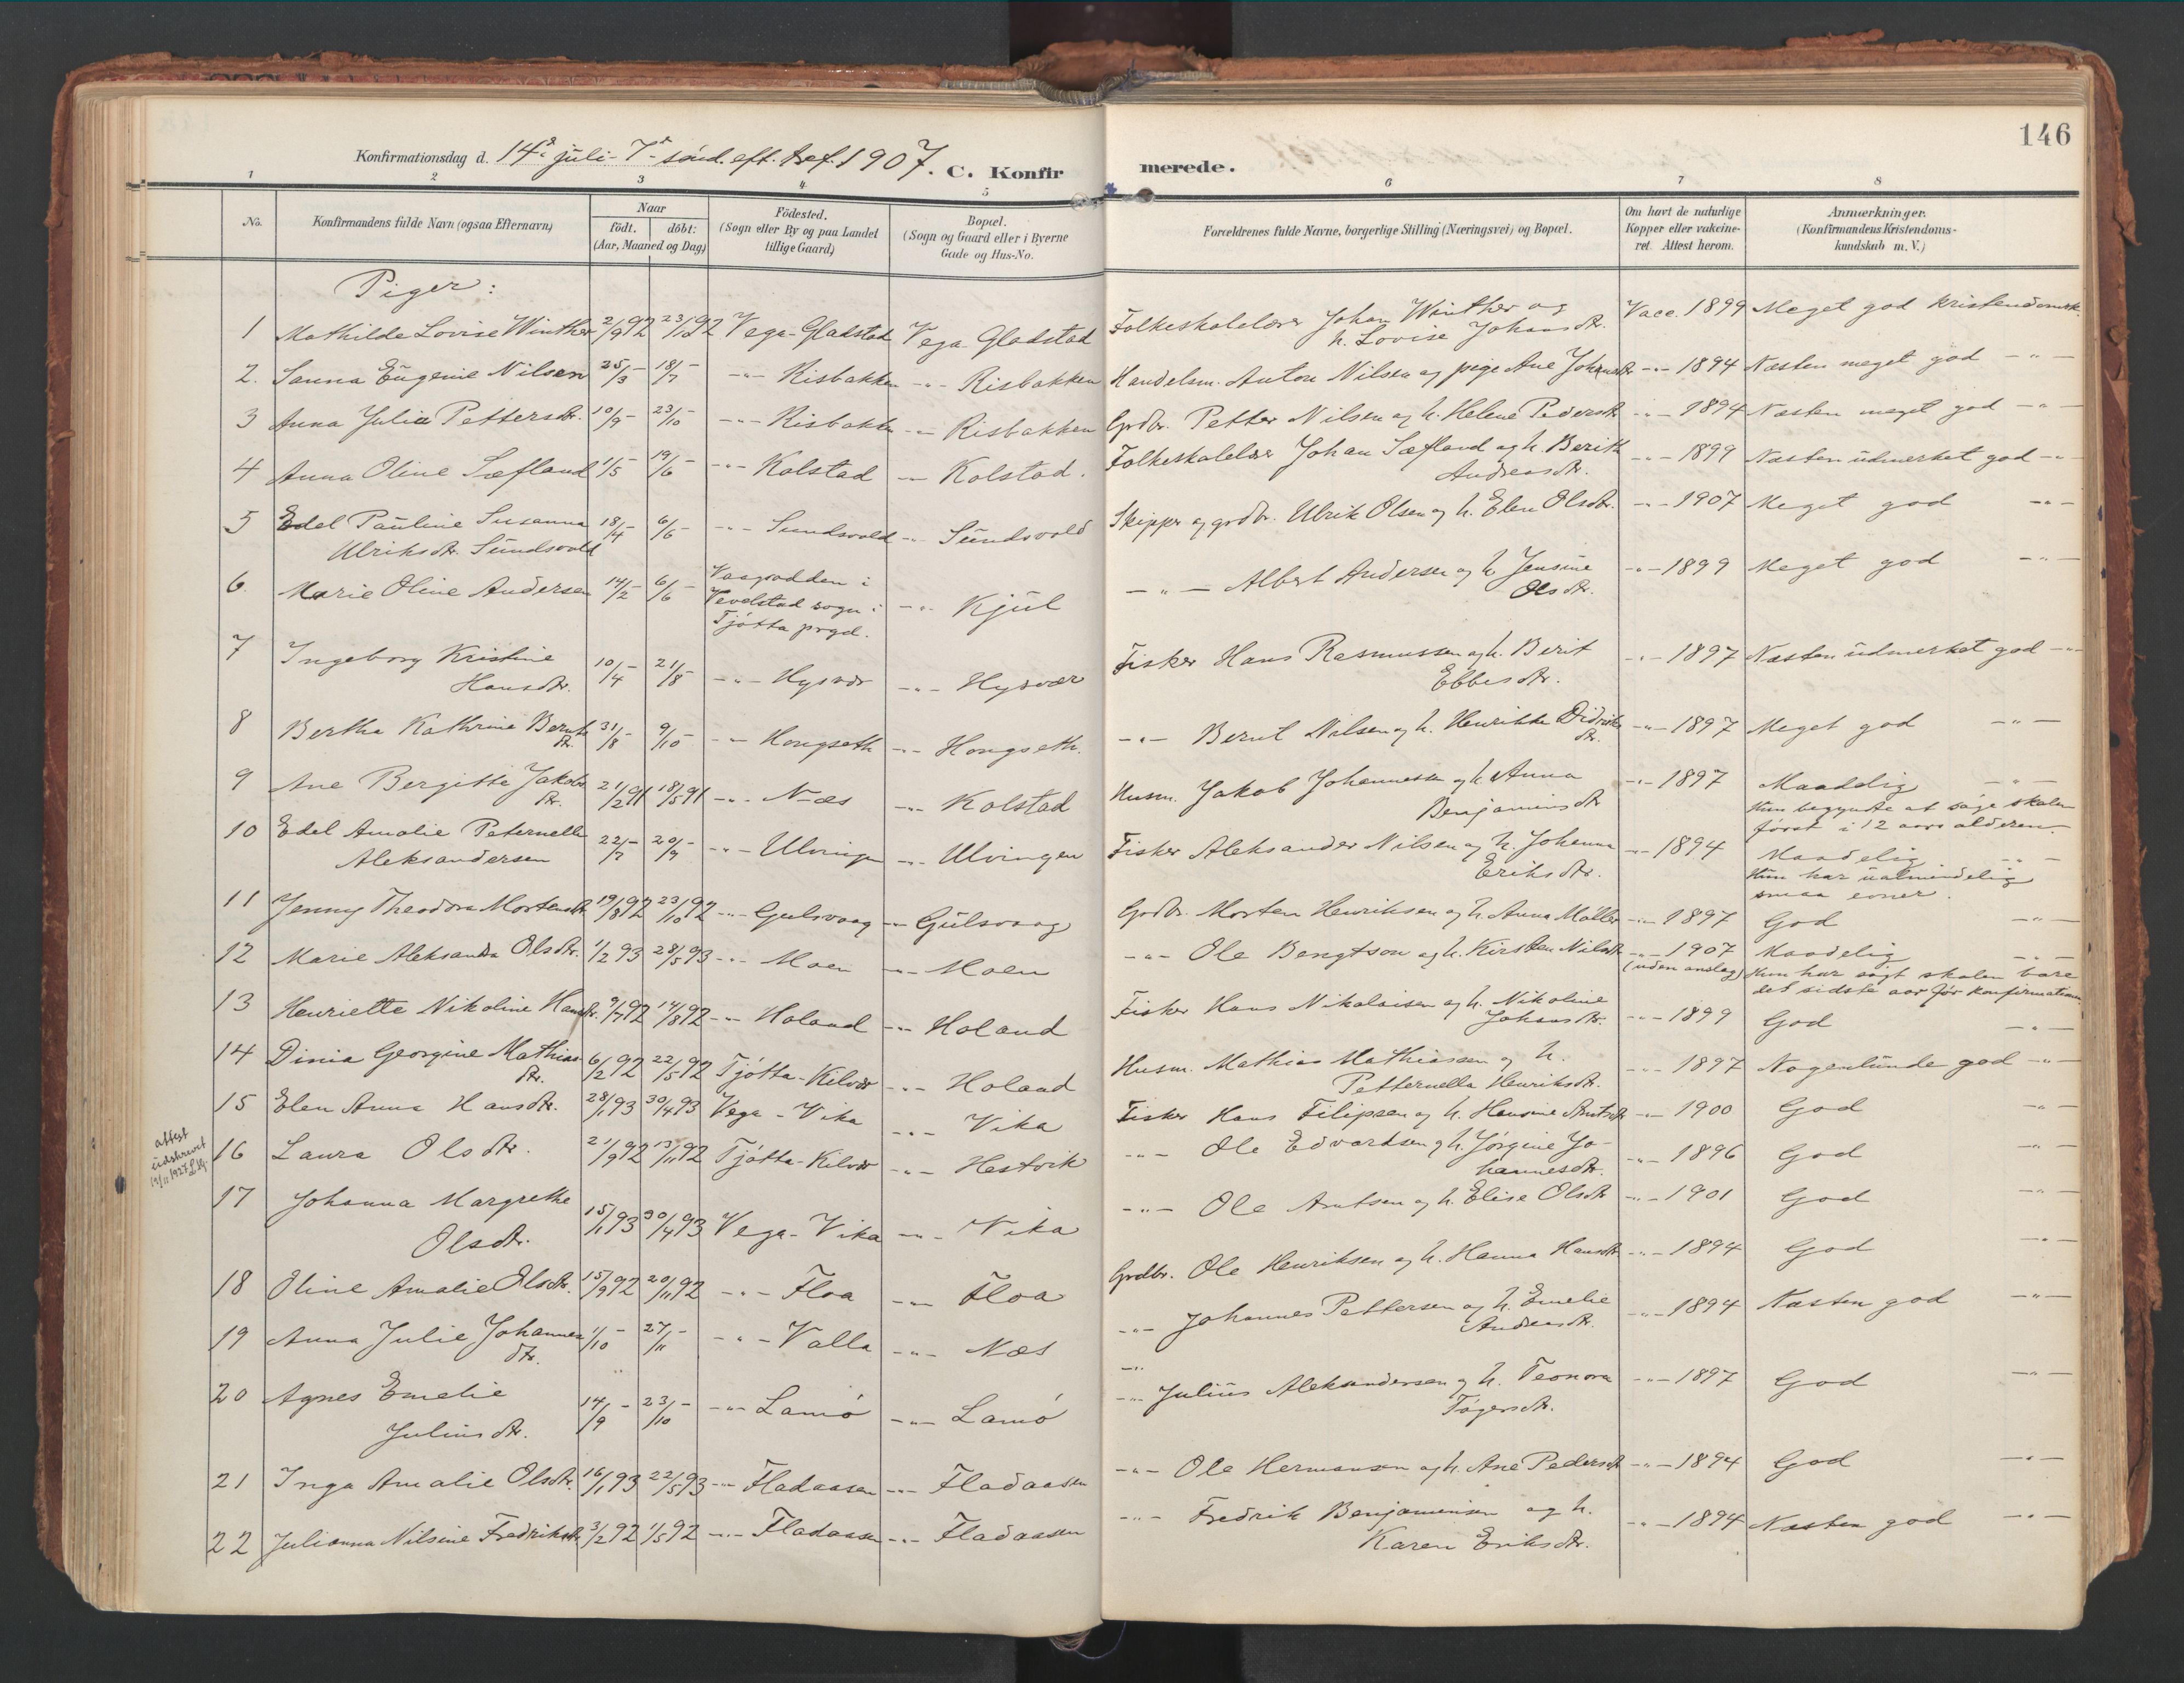 146
Konfirmationsdag d. 14de juli - 7de sønd. eft. tref. 1907. C. Konfirmerede.
1 2 3 4 5 6 7 8
No. Konfirmandens fulde Navn (ogsaa Efternavn) Naar født. døbt: (Aar, Maaned og Dag) Fødested. (Sogn eller By og paa Landet tillige Gaard) Bopæl. (Sogn og Gaard eller i Byerne Gade og Hus-No. Forældrenes fulde Navne, borgerlige Stilling (Næringsvei) og Bopæl. Om havt de naturlige Kopper eller vakcineret. Attest herom. Anmærkninger. (Konfirmandens Kristendomskundskab m. V.)
Piger:
1 Mathilde Lovise Winther 2/9 92 23/12 92 Vega-Gladstad Vega Gladstad Folkeskolelærer Johan Winther og h. Lovise Johansdtr. Vacc. 1899 Meget god kristendomsk.
2. Sanna Eugenie Nilsen 25/3 - 18/7 - -"- Risbakken -"- Risbakken Handelsm. Anton Nilsen og pige Ane Johansdtr -"- 1894 Næsten meget god -"-
3 Anna Julie Pettersdtr. 10/9 - 23/10 - -"- Risbakken -"- Risbakken Grdbr. Petter Nilsen og h. Helene Pedersdtr -"- 1894 Næsten meget god -"-
4 Anna Oline Sæfland 1/5 - 19/6 - -"- Kolstad -"- Kolstad. Folkeskolelærer Johan Sæfland og h. Berith Andreasdtr. -"- 1899 Næsten udmerket god -"-
5 Edel Pauline Susanna Ulriksdtr. Sundsvold 18/4 - 6/6 - -"- Sundsvold -"- Sundsvold Skipper og grdbr. Ulrik Olsen og h. Elen Olsdtr. -"- 1907 Meget god -"-
6. Marie Oline Andersen 14/2 - 6/6 - Vaagsodden i Vevelstad sogn i Tjøtta prgd. -"- Kjul -"- Albert Andersen og h. Jensine Olsdtr. -"- 1899 Meget god -"-
7 Ingeborg Kristine Hansdtr. 10/4 - 21/8 - -"- Hysvær -"- Hysvær Fisker Hans Rasmussen og h. Berit Ebbesdtr. -"- 1897 Næsten udmerket god -"-
8 Bertha Kathrine Berntsdtr. 31/8 - 9/10 - -"- Hongseth -"- Hongseth. -"- Bernt Nilsen og h. Henrikke Didriksdtr. -"- 1897 Meget god -"-
9 Ane Bergitte Jakobsdtr. 21/2 91 18/5 91 -"- Næs -"- Kolstad Husm. Jakob Johannessen og h. Anna Benjaminsdtr -"- 1897 Maadelig -"-
Hun begyndte at søge skolen først i 12 aars alderen.
10 Edel Amalie Peternelle Aleksandersen 22/7 - 20/9 - -"- Ulvingen -"- Ulvingen Fisker Aleksander Nilsen og h. Johanna Eriksdtr. -"- 1894 Maadelig -"-
Hun har ualmindelig smaa evner.
11 Jenny Theodora Mortensdtr 19/8 92 23/10 92 -"- Gulsvaag -"- Gulsvaag Grdbr. Morten Henriksen og h. Anna Møller -"- 1897 God -"-
12 Marie Aleksandra Olsdtr. 1/2 93 28/5 93 -"- Moen -"- Moen -"- Ole Bengtson og h. Kirsten Nilsdtr -"- 1907 (uden anslag) Maadelig -"-
Hun har søgt skolen bare det sidste aar før konfirmationen
13 Henriette Nikoline Hansdtr. 9/7 92 14/8 92 -"- Holand -"- Holand Fisker Hans Nikolaisen og h. Nikoline Johansdtr. -"- 1899 God -"-
14 Dinia Georgine Mathiasdtr. 6/2 92 22/5 92 Tjøtta-Kilvær -"- Holand Husm. Mathias Mathiassen og h. Petternella Henriksdtr. -"- 1897 Nogenlunde god -"-
15 Elen Anna Hansdtr. 28/1 93 30/4 93 Vega - Vika -"- Vika Fisker Hans Filipsen og h. Hansine Arntsdtr -"- 1900 God -"-
attest udskrevet 19/11 1927
16 Laura Olsdtr. 21/9 92 13/11 92 Tjøtta-Kilvær -"- Hestvik -"- Ole Edvardsen og h. Jørgine Johannesdtr. -"- 1896 God -"-
17 Johanna Margrethe Olsdtr. 15/1 93 30/4 93 Vega-Vika -"- Vika -"- Ole Arntsen og h. Elise Olsdtr -"- 1901 God -"-
18 Oline Amalie Olsdtr. 15/9 92 20/11 92 -"- Floa -"- Floa Grdbr. Ole Henriksen og h. Hanna Hansdtr -"- 1894 God -"-
19 Anna Julie Johannesdtr. 1/10 - 27/11 - -"- Valla -"- Næs -"- Johannes Pettersen og h. Emelie Andreasdtr. -"- 1894 Næsten god -"-
20 Agnes Emelie Juliusdtr. 14/9 - 23/10 - -"- Lamø -"- Lamø -"- Julius Aleksandersen og h. Leonora Tøgersdtr. -"- 1897 God -"-
21 Inga Amalie Olsdtr. 16/1 93 22/5 93 -"- Fladaasen -"- Fladaasen -"- Ole Hermansen og h. Ane Pedersdtr -"- 1894 God -"-
22 Julianna Nilsine Fredriksdtr. 3/2 92 1/5 92 -"- Fladaasen -"- Fladaasen -"- Fredrik Benjaminsen og h. Karen Eriksdtr. -"- 1894 Næsten god -"-